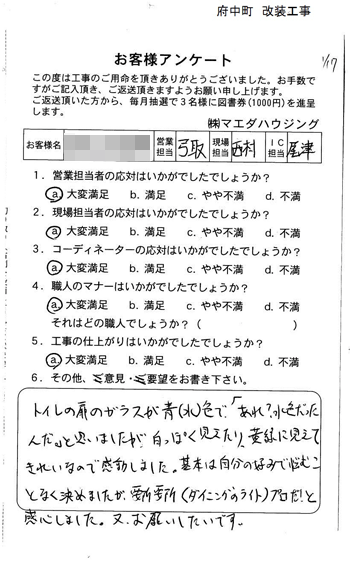 府中町 改装工事
1/17
お客様アンケート
この度は工事のご用命を頂きありがとうございました。お手数で
すがご記入頂き、ご返送頂きますようお願い申し上げます。
ご返送頂いた方から、毎月抽選で３名様に図書券(1000円)を進呈
します。
㈱マエダハウジング
お客様名 営業担当 弓取 現場担当 西村 ＩＣ担当 尾津
１．営業担当者の応対はいかがでしたでしょうか？
a. 大変満足 b. 満足 c. やや不満 d. 不満
２．現場担当者の応対はいかがでしたでしょうか？
a. 大変満足 b. 満足 c. やや不満 d. 不満
３．コーディネーターの応対はいかがでしたでしょうか？
a. 大変満足 b. 満足 c. やや不満 d. 不満
４．職人のマナーはいかがでしたでしょうか？
a. 大変満足 b. 満足 c. やや不満 d. 不満
それはどの職人でしょうか？（ ）
５．工事の仕上がりはいかがでしたでしょうか？
a. 大変満足 b. 満足 c. やや不満 d. 不満
６．その他、ご意見・ご要望をお書き下さい。
トイレの扉のガラスが青(水)色で、「あれ？水色だった
んだ。」と思いましたが白っぽく見えたり、黄緑に見えて
きれいなので感動しました。基本は自分の好みで悩むこ
となく決めましたが、要所要所(ダイニングのライト)プロだ！と
感心しました。又、お願いしたいです。